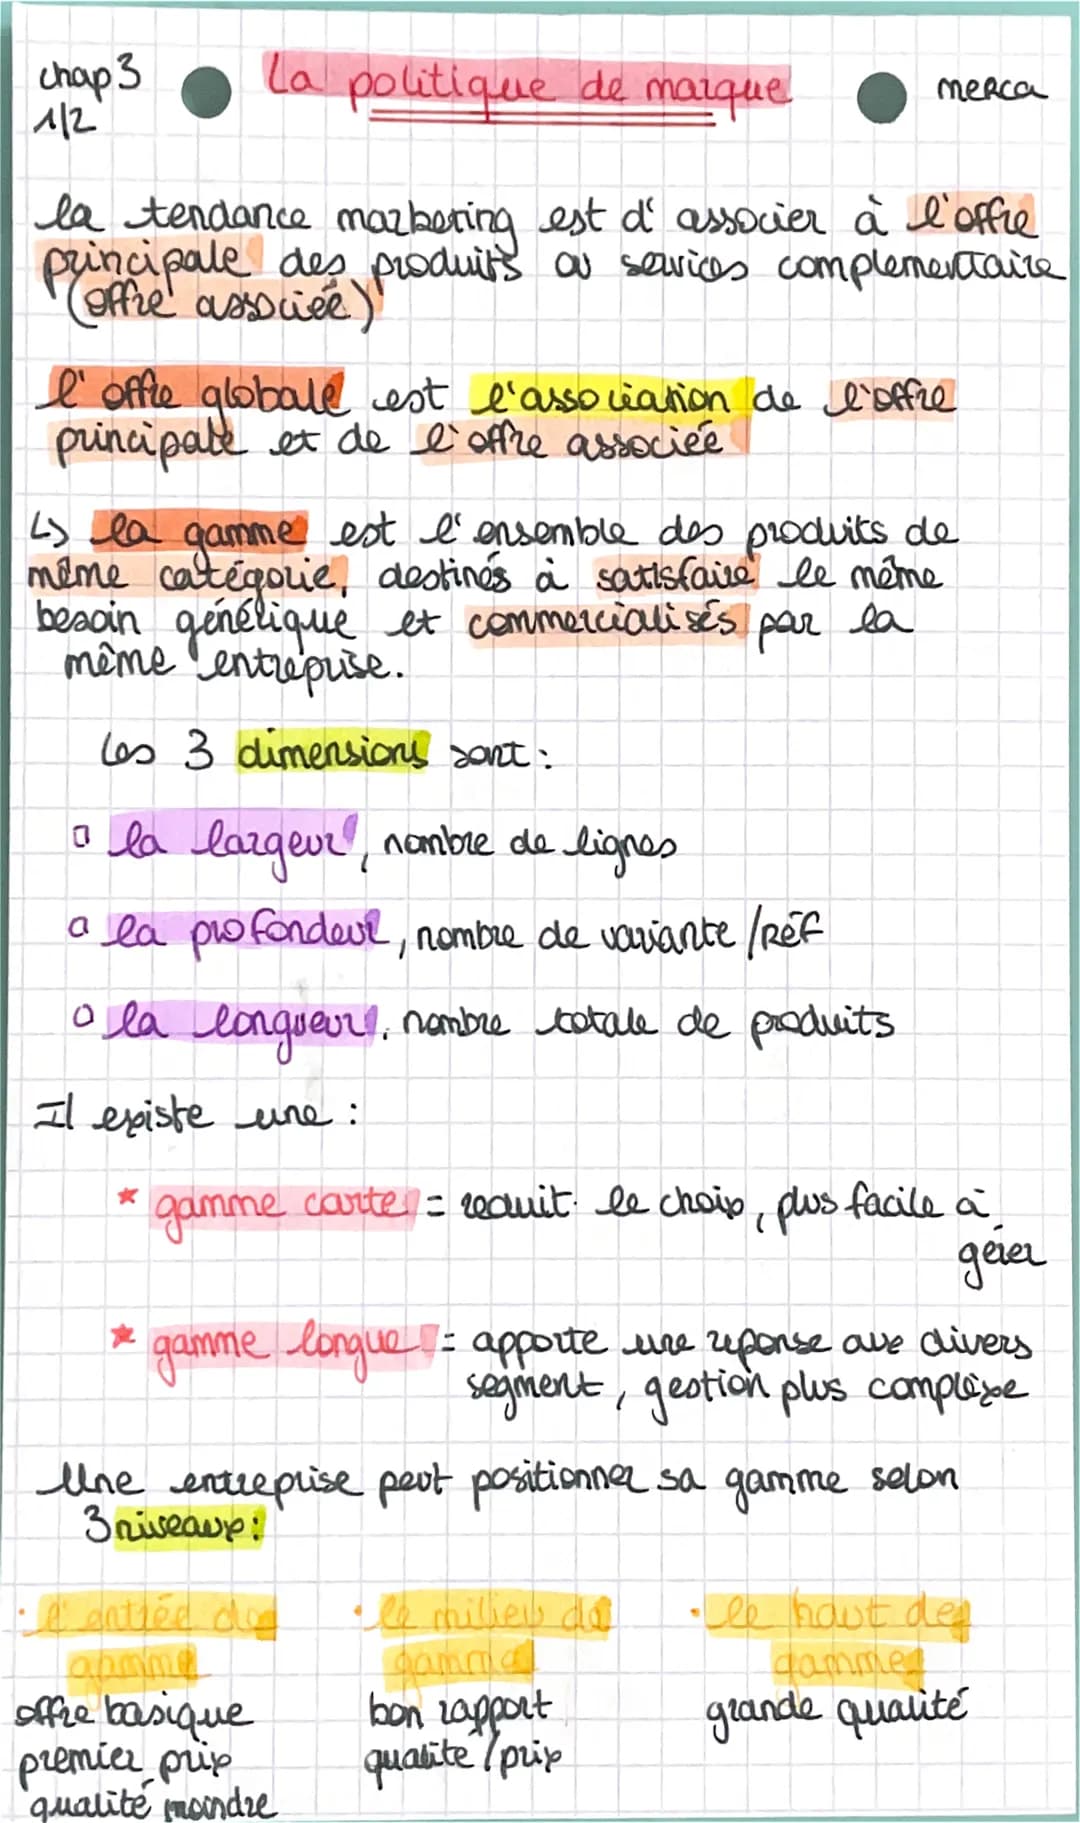 chap 3
1/2
La politique de marque
merca
la tendance marketing est d'associer à l'offre
principale des produits ou services complementaire
(offre associée)
l'offre globale est l'association de l'offre
principale et de l'offre associée
↳ la gamme est l'ensemble des produits de
même catégorie, destinés à satisfaire le même
besoin générique et commercialisés par la
même entreprise.
Les 3 dimensions sont :
□ la largeur, nombre de lignes
□ la profondeur, nombre de variante / Réf
□ la longueur, nombre totale de produits
Il existe une :
* gamme courte = reduit le choix, plus facile à
gérer
* gamme longue = apporte une reponse aux divers
segment, gestion plus complexe
Une entreprise peut positionner sa gamme selon
3 niveaux :
• l'entrée de
gamme
offre basique
premier prix
qualité moindre
• le milieu de
gamme
bon rapport
qualite / prix
• le haut de
gamme
grande qualité